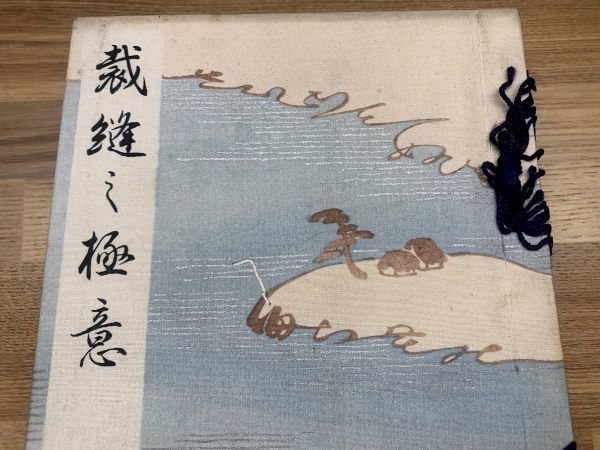 裁縫之極意